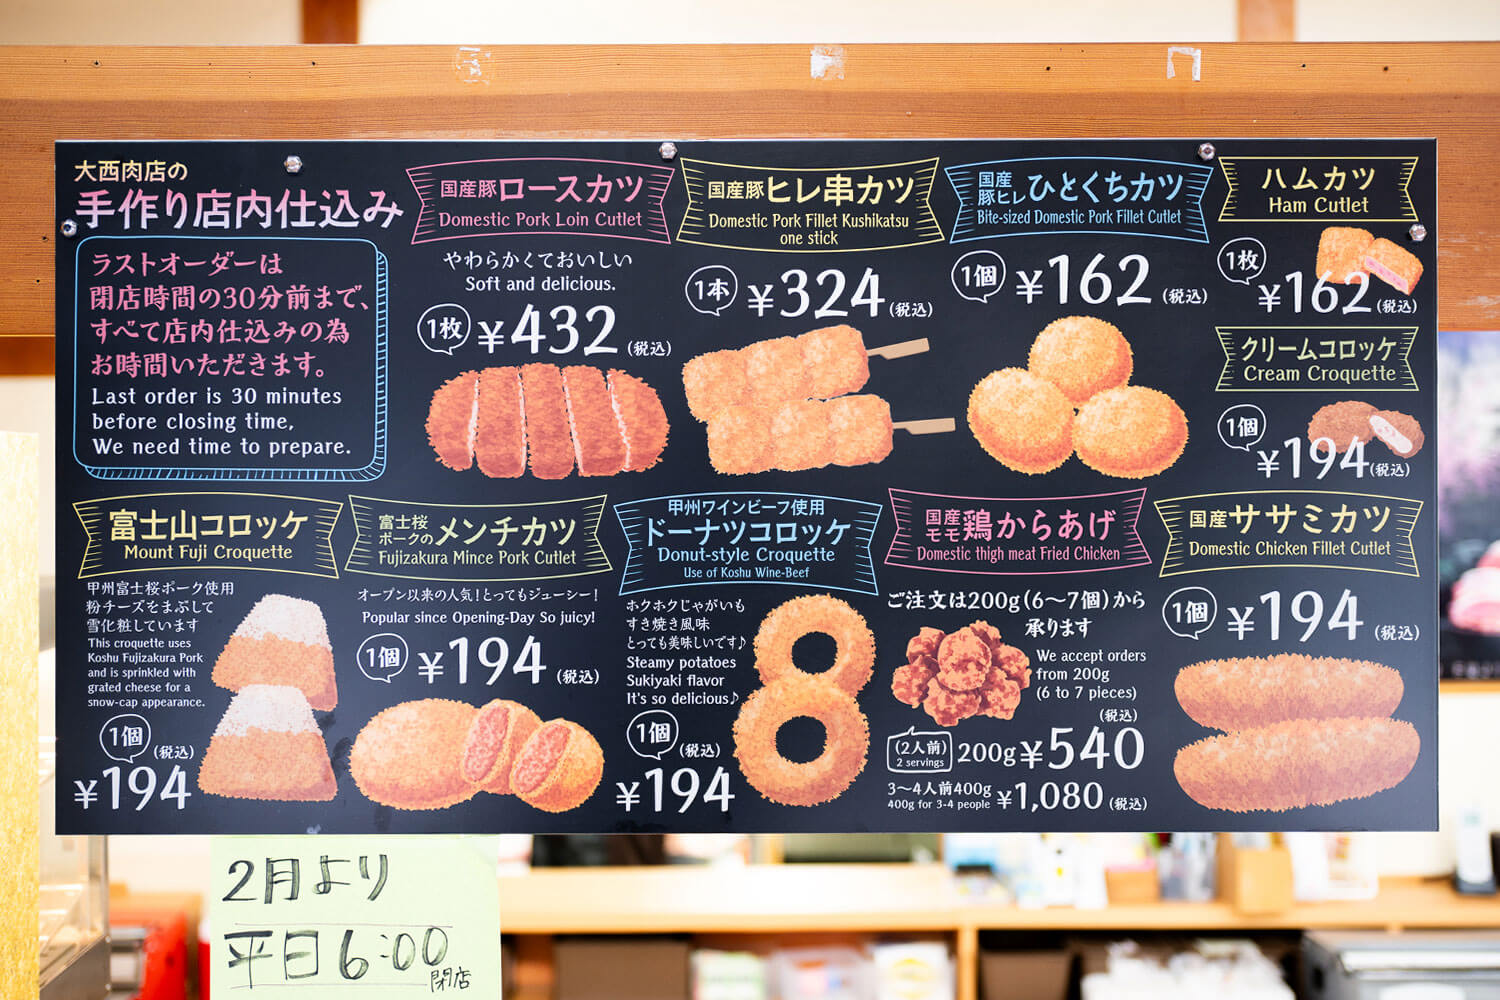 大西肉店の
手作り店内仕込み
ラストオーダーは
閉店時間の30分前まで、
すべて店内仕込みの為
お時間いただきます。
Last order is 30 minutes
before closing time,
We need time to prepare.
国産豚ロースカツ
Domestic Pork Loin Cutlet
やわらかくておいしい
Soft and delicious.
1枚 ¥432 (税込)
国産豚ヒレ串カツ
Domestic Pork Fillet Kushikatsu
one stick
1本 ¥324 (税込)
国産
豚ヒレ ひとくちカツ
Bite-sized Domestic Pork Fillet Cutlet
1個 ¥162 (税込)
ハムカツ
Ham Cutlet
1枚
¥162 (税込)
クリームコロッケ
Cream Croquette
1個
¥194 (税込)
富士山コロッケ
Mount Fuji Croquette
甲州富士桜ポーク使用
粉チーズをまぶして
雪化粧しています
This croquette uses
Koshu Fujizakura Pork
and is sprinkled with
grated cheese for a
snow-cap appearance.
1個 (税込)
¥194
富士桜
ポークの メンチカツ
Fujizakura Mince Pork Cutlet
オープン以来の人気！とってもジューシー！
Popular since Opening-Day So juicy!
1個 ¥194 (税込)
甲州ワインビーフ使用
ドーナツコロッケ
Donut-style Croquette
Use of Koshu Wine-Beef
ホクホクじゃがいも
すき焼き風味
とっても美味しいです♪
Steamy potatoes
Sukiyaki flavor
It's so delicious♪
1個 (税込)
¥194
国産
モモ 鶏からあげ
Domestic thigh meat Fried Chicken
ご注文は200g(6〜7個)から
承ります
We accept orders
from 200g
(6 to 7 pieces)
(税込)
(2人前)
2 servings
200g ¥540
3〜4人前400g
400g for 3-4 people
¥1,080 (税込)
国産ササミカツ
Domestic Chicken Fillet Cutlet
1個 ¥194 (税込)
2月より
平日6:00
閉店